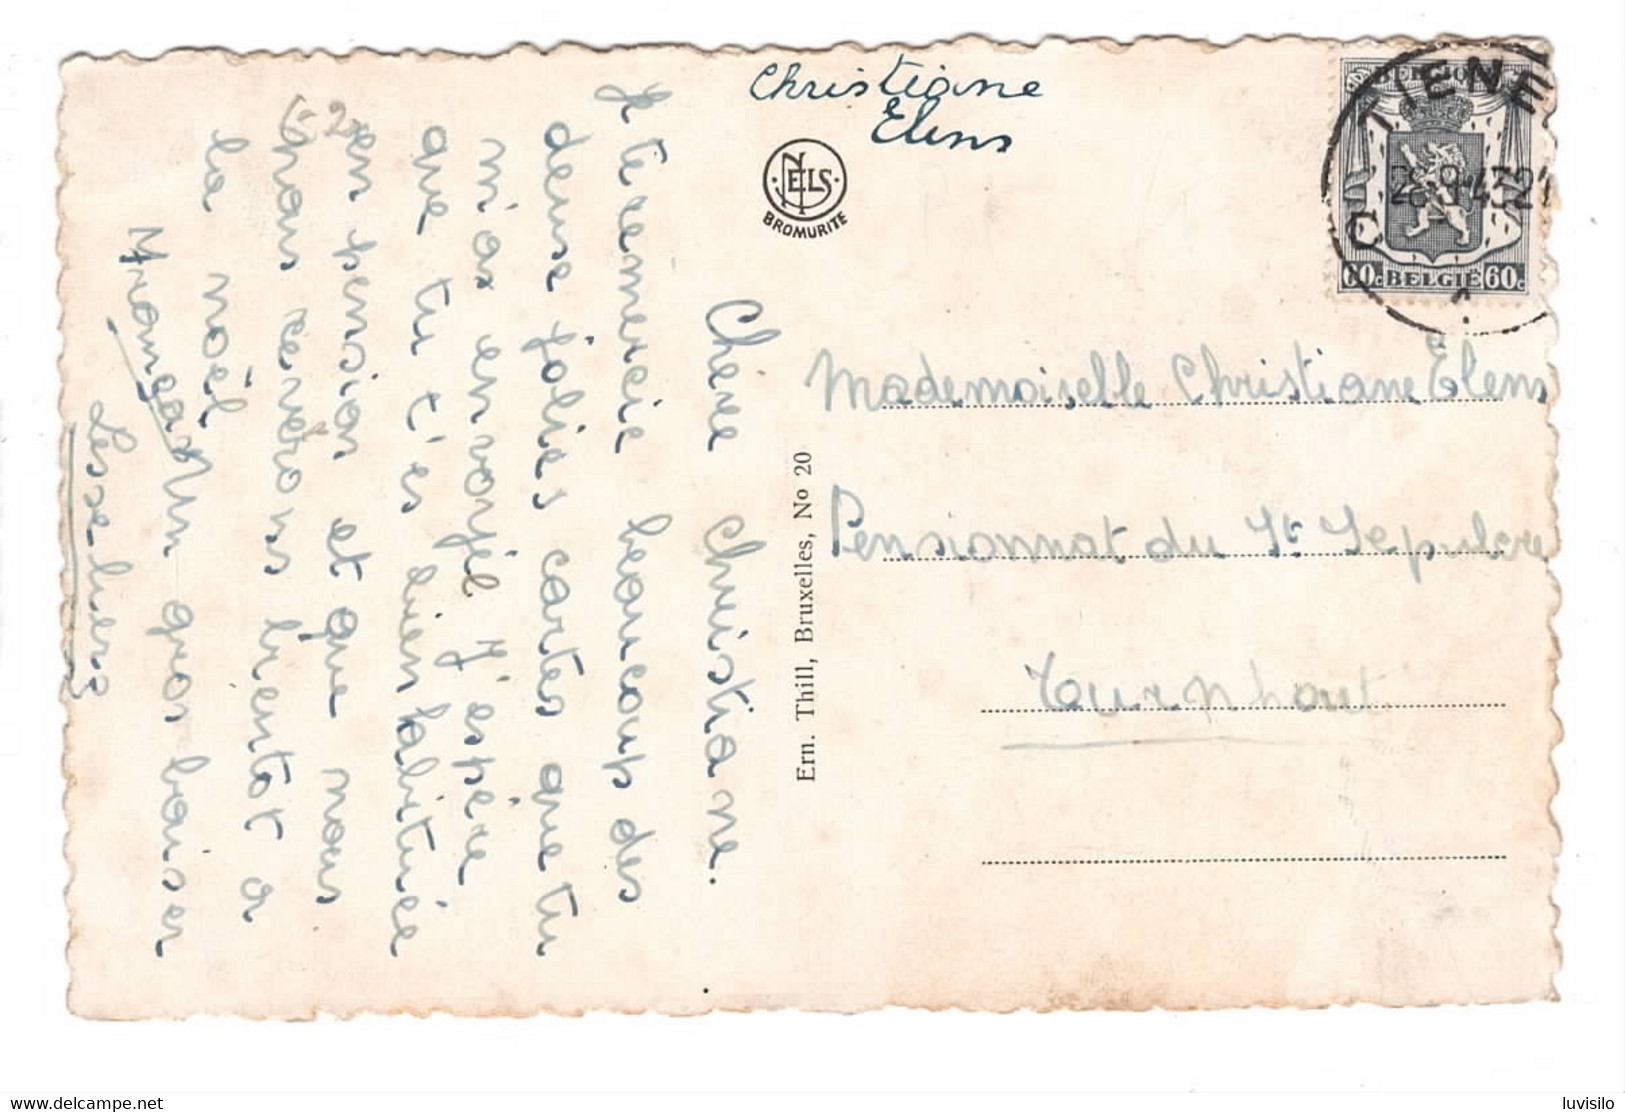 Christiane
Elens
NELS
BROMURITE
TIENE
C
BELGIE
60c BELGIË 60c
Chère Christiane.
Je te remercie beaucoup des
deuse jolies cartes que tu
m'as envoyél J'espère
que tu t'es bien habituée
en pension et que nous
nous reverons bientot a
la noël
Un gros baiser
Ern. Thill, Bruxelles, No 20
Mademoiselle Christiane Elens
Pensionnat du St Sepulcre
Turnhout
www.delcampe.net
luvisilo